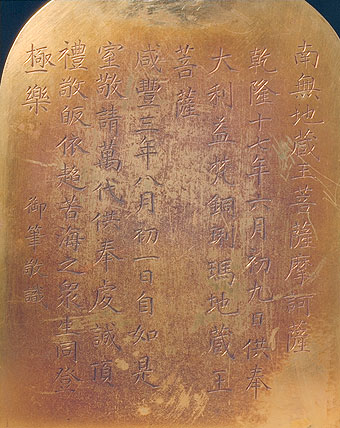 南無地藏王菩薩摩訶薩
乾隆十七年六月初九日供奉
大利益梵銅琍瑪地藏王
菩薩
咸豐三年八月初一日自如是
室敬請萬代供奉虔誠頂
禮敬皈依超苦海之衆生同登
極樂 御筆敬識